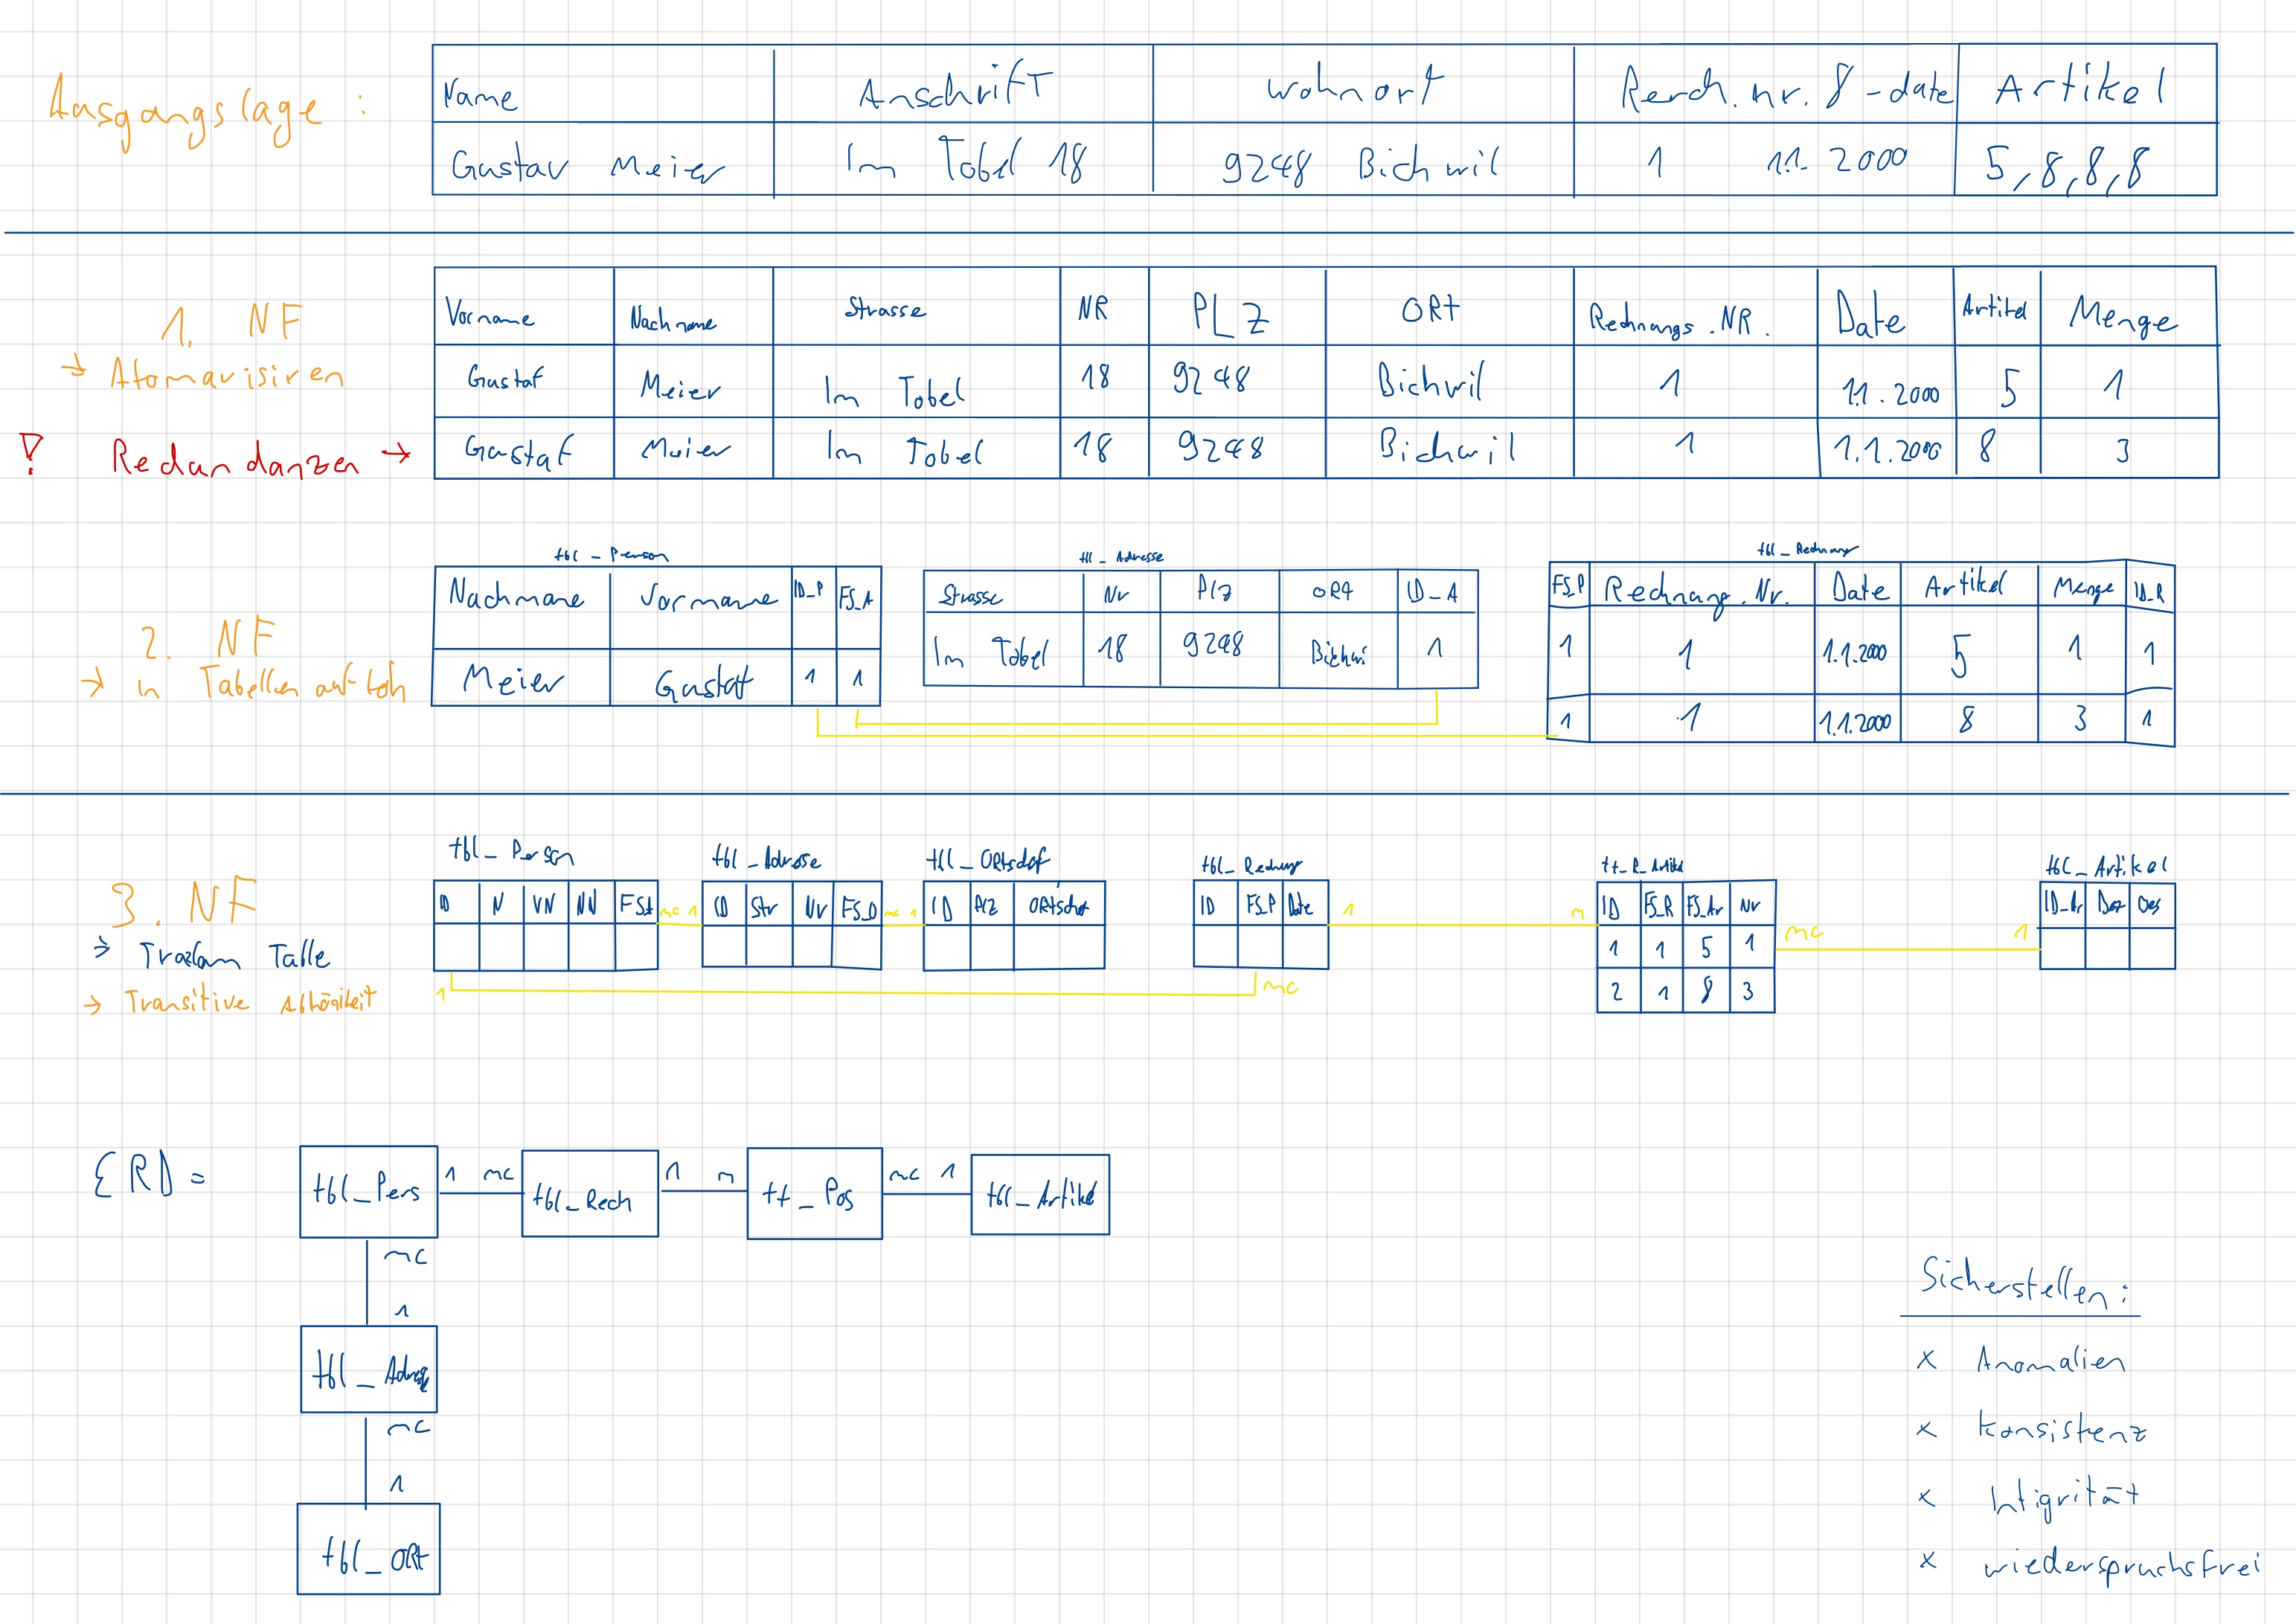 Ausgangslage :
Name Anschrift wohnort Rerch.nr. & -date Artikel
Gustav Meier Im Tobel 18 9248 Bichwil 1 1.1. 2000 5,8,8,8
1. NF
→ Atomavisiren
! Redundanzen →
Vorname Nachname Strasse NR PLZ ORt Rechnungs.NR. Date Artikel Menge
Gustaf Meier Im Tobel 18 9248 Bichwil 1 1.1.2000 5 1
Gustaf Meier Im Tobel 18 9248 Bichwil 1 1.1.2000 8 3
2. NF
→ in Tabellen
tbl_Person
Nachname Vorname ID_P FS_A
Meier Gustaf 1 1
tbl_Adresse
Strasse Nr Plz ORt ID_A
Im Tobel 18 9248 Bichwi 1
tbl_Rechnung
FS_P Rechnung.Nr. Date Artikel Menge ID_R
1 1 1.1.2000 5 1 1
1 1 1.1.2000 8 3 1
3. NF
→ Table
→ Transitive
tbl_Person
ID N VN NN FS_A
mc 1
tbl_Adresse
ID Str Nr FS_O
mc 1
tbl_ORtschaf
ID Plz ORtschaf
tbl_Rechnung
ID FS_P Date
1 mc
1 m
tt_R_Artikel
ID FS_R FS_Ar Nr
1 1 5 1
2 1 8 3
mc 1
tbl_Artikel
ID_Ar Bez
ERD =
tbl_Pers 1 mc tbl_Rech 1 m tt_Pos mc 1 tbl_Artikel
mc
1
tbl_Adresse
mc
1
tbl_ORt
Sicherstellen :
x Anomalien
x Konsistenz
x Intigrität
x wiederspruchsfrei